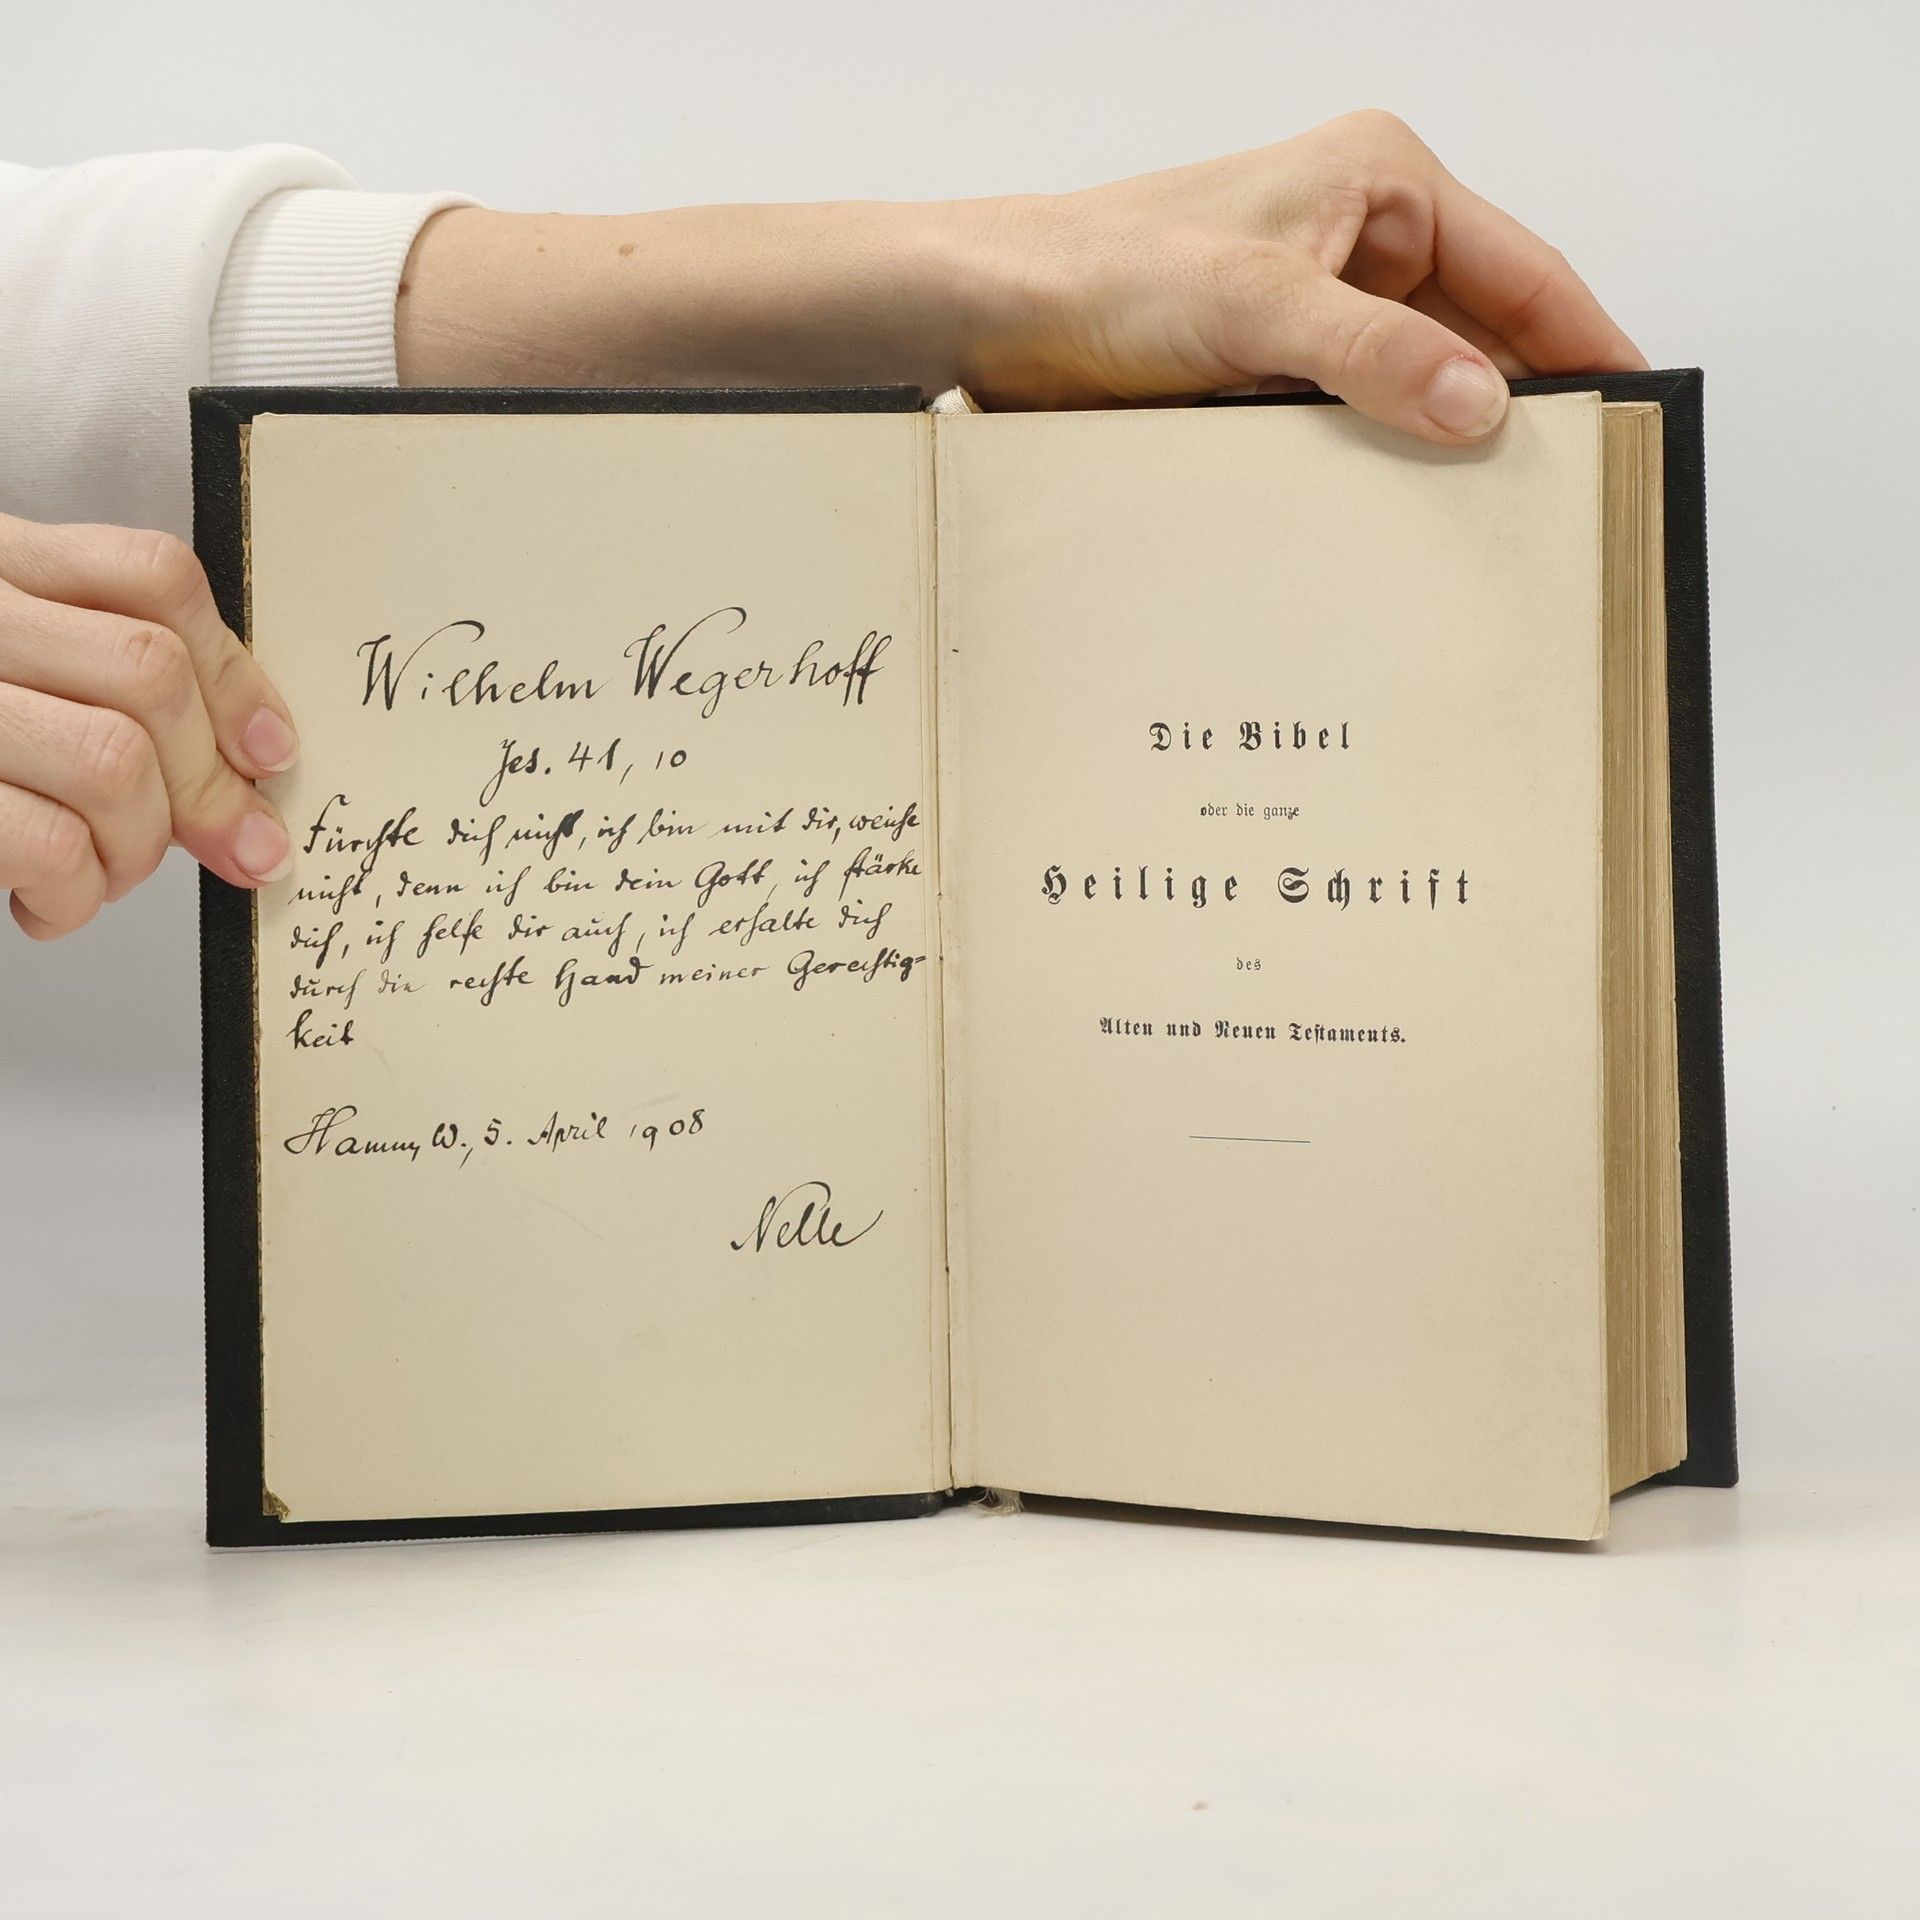 Wilhelm Wegerhoff
Jes. 41, 10
Fürchte dich nicht, ich bin mit dir, weiche
nicht, denn ich bin dein Gott, ich stärke
dich, ich helfe dir auch, ich erhalte dich
durch die rechte Hand meiner Gerechtig=
keit
Hamm, W., 5. April 1908
Nelle
Die Bibel
oder die ganze
Heilige Schrift
des
Alten und Neuen Testaments.